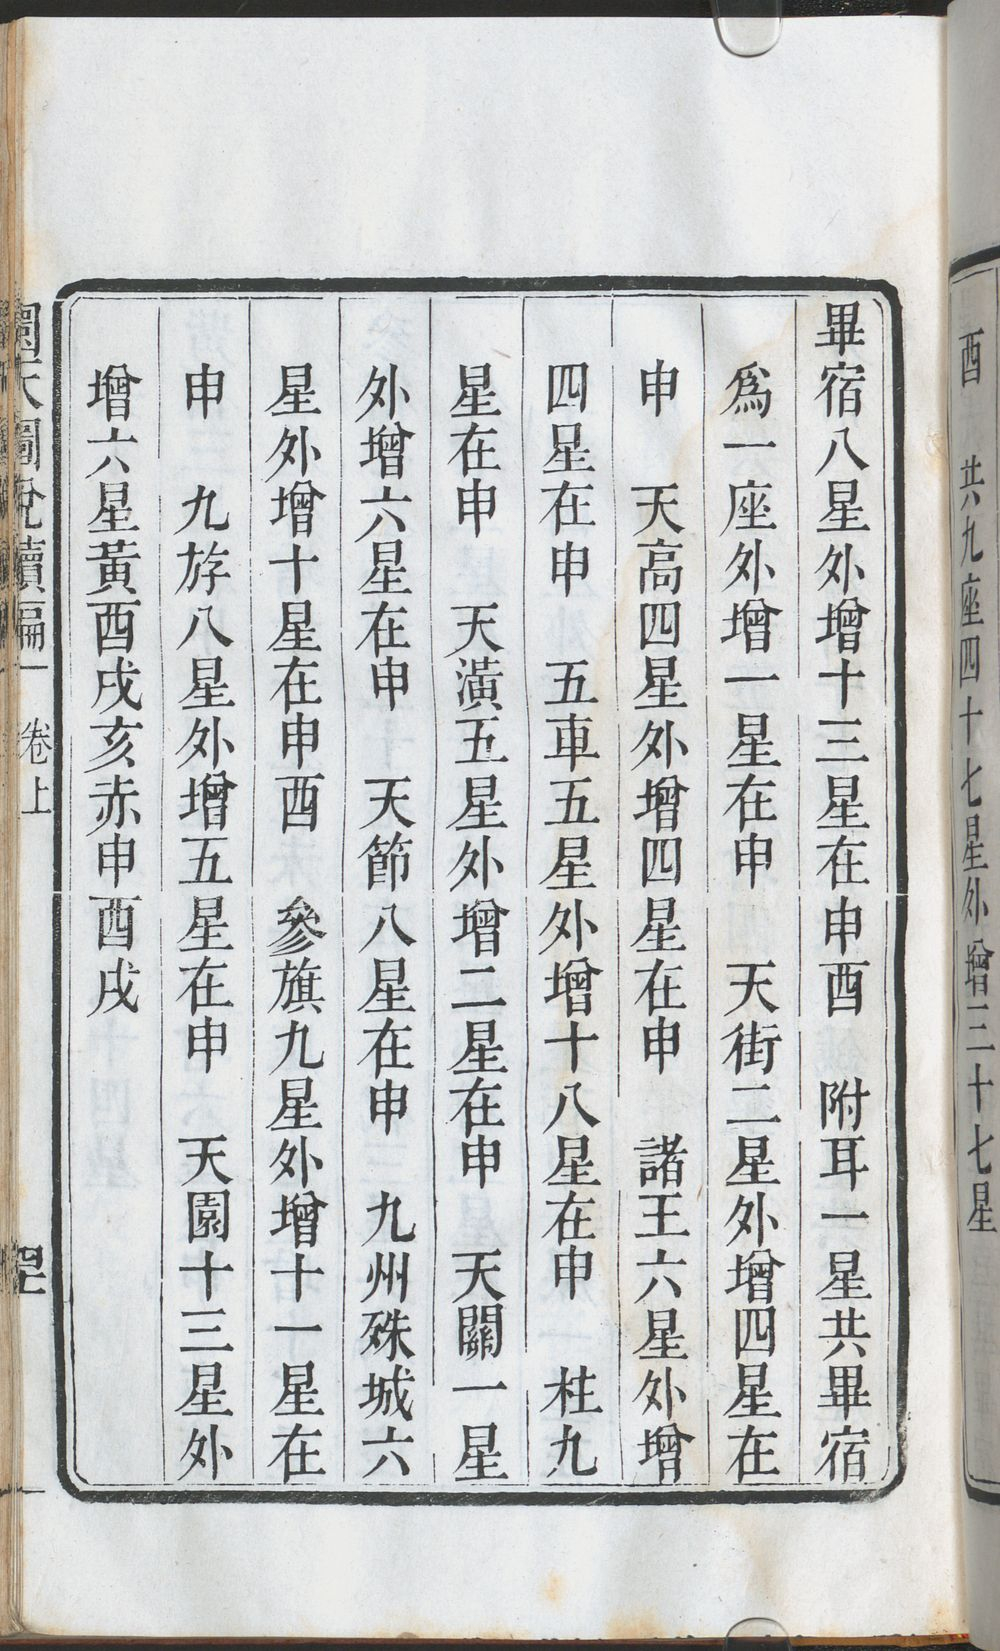 酉　共九座四十七星外增三十七星
畢宿八星外增十三星在申酉　附耳一星共畢宿
爲一座外增一星在申　天街二星外增四星在
申　天高四星外增四星在申　諸王六星外增
四星在申　五車五星外增十八星在申　柱九
星在申　天潢五星外增二星在申　天關一星
外增六星在申　天節八星在申　九州殊城六
星外增十星在申酉　參旗九星外增十一星在
申　九斿八星外增五星在申　天園十三星外
增六星黃酉戌亥赤申酉戌
圜天圖說續編　卷上